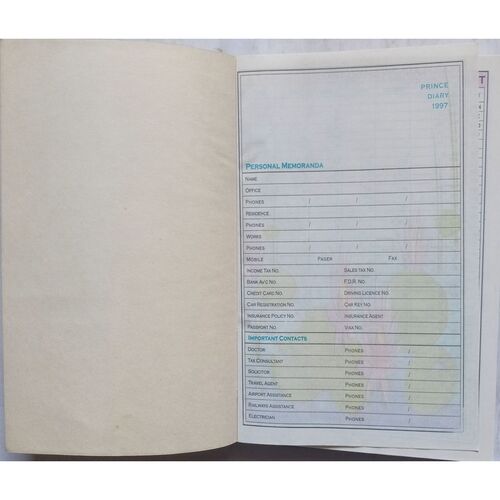 PRINCE
DIARY
1997
PERSONAL MEMORANDA
NAME
OFFICE
PHONES / / /
RESIDENCE
PHONES / / /
WORKS
PHONES / / /
MOBILE PAGER FAX
INCOME TAX NO. SALES TAX NO.
BANK A/C NO. F.D.R. NO.
CREDIT CARD NO. DRIVING LICENCE NO.
CAR REGISTRATION NO. CAR KEY NO.
INSURANCE POLICY NO. INSURANCE AGENT
PASSPORT NO. VISA NO.
IMPORTANT CONTACTS
DOCTOR PHONES /
TAX CONSULTANT PHONES /
SOLICITOR PHONES /
TRAVEL AGENT PHONES /
AIRPORT ASSISTANCE PHONES /
RAILWAYS ASSISTANCE PHONES /
ELECTRICIAN PHONES /
T